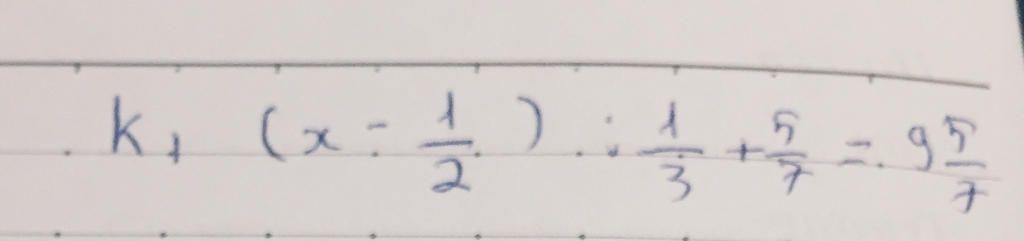 k, (x - 1/2) : 1/3 + 5/7 = 9 5/7